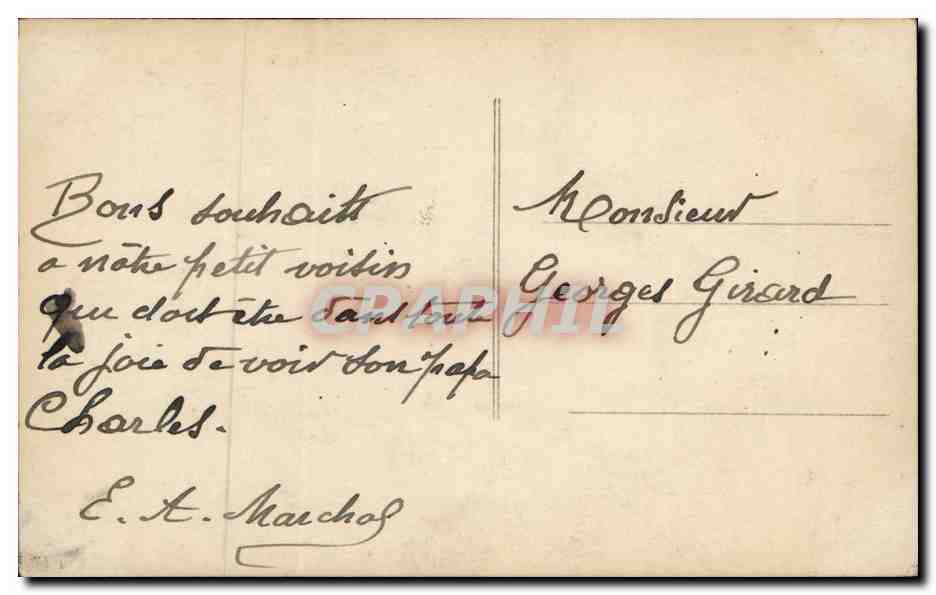 Bons souhaits
a nôtre petit voisin
qui doit être dans toute
la joie de voir son papa
Charles.
E. A. Marchal
Monsieur
Georges Girard
CRAPHIL